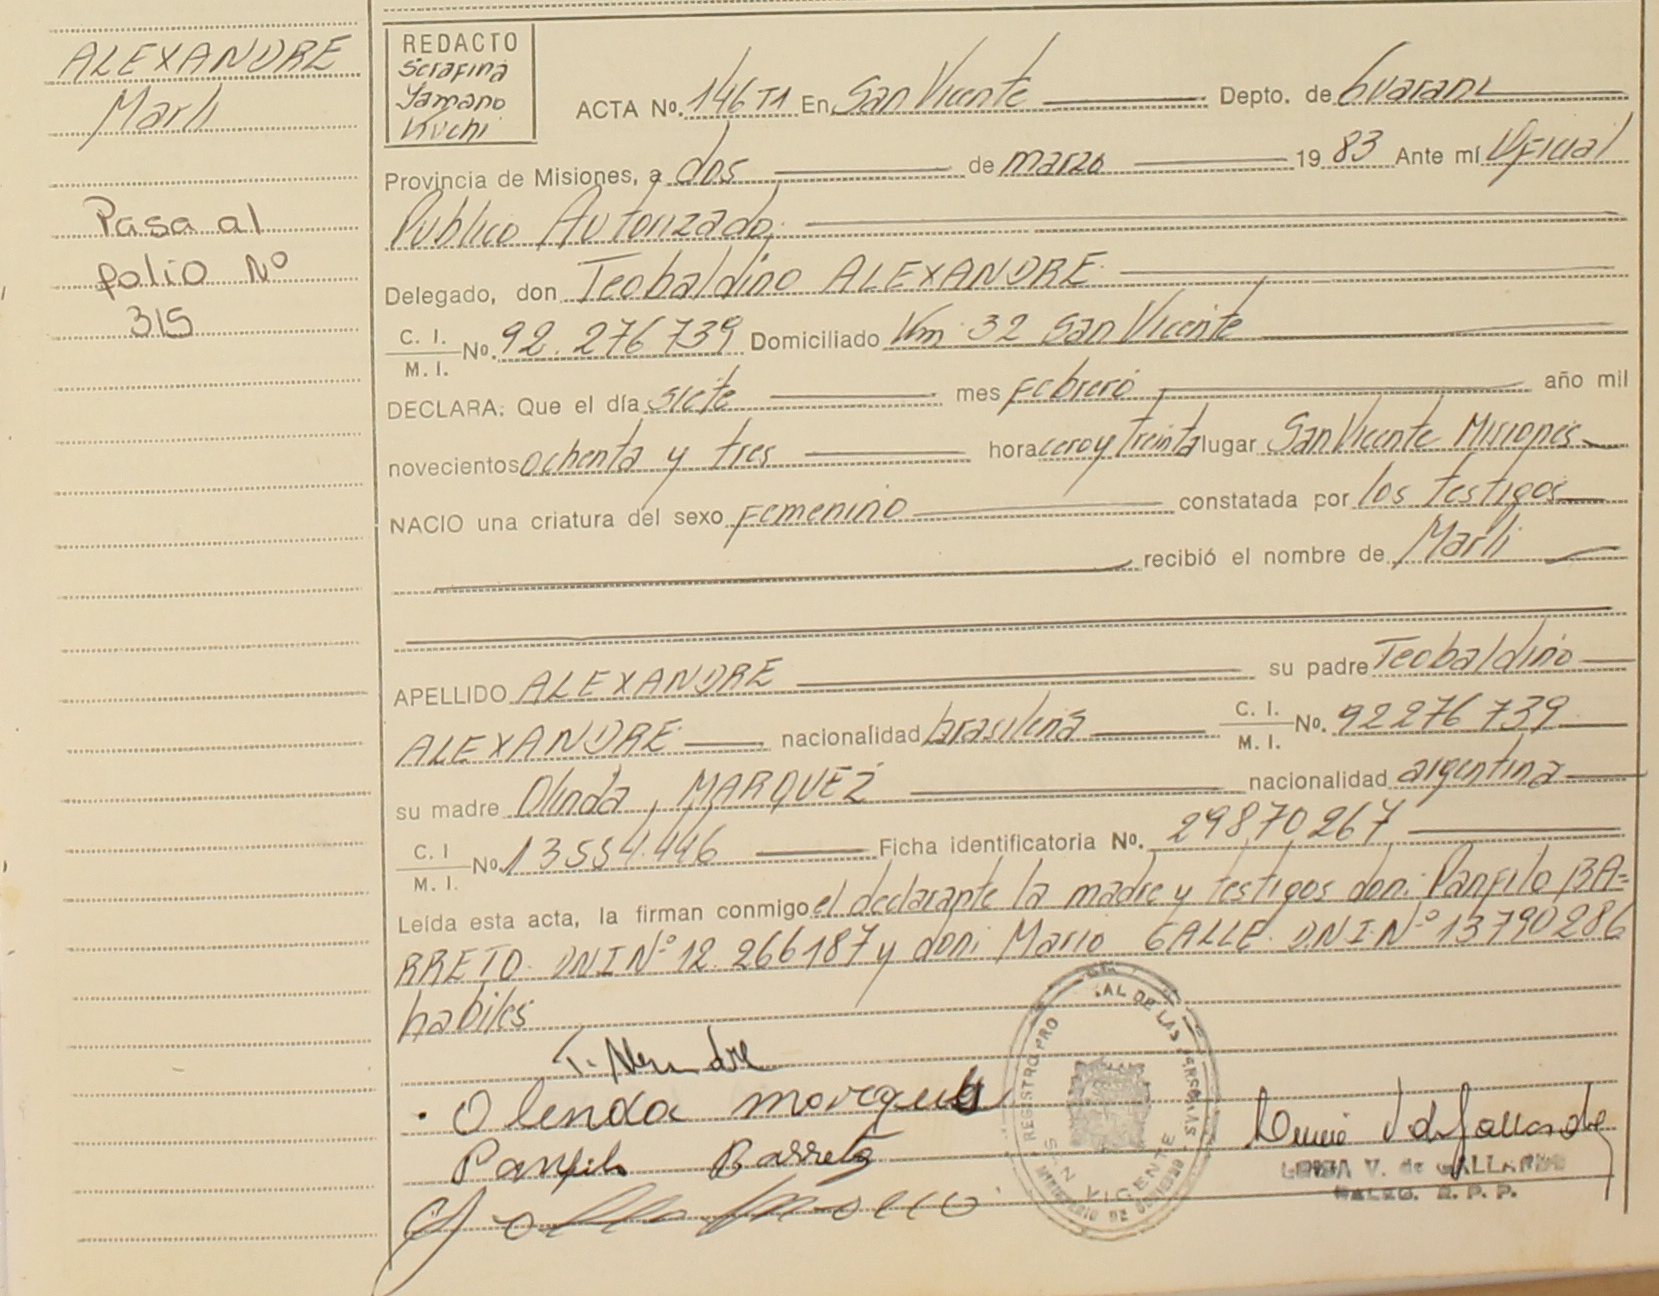 ALEXANDRE
Marli
Pasa al
folio Nº
315
REDACTO
Serafina
Yamano
Kiuchi
ACTA Nº. 146 T1 En San Vicente Depto. de Guarani
Provincia de Misiones, a dos de marzo 1983 Ante mí Oficial
Publico Autorizado,
Delegado, don Teobaldino ALEXANDRE
C. I.
M. I. Nº. 92.276.739 Domiciliado Km 32 San Vicente
DECLARA: Que el día siete mes Febrero año mil
novecientos ochenta y tres hora cero y treinta lugar San Vicente Misiones
NACIO una criatura del sexo Femenino constatada por los testigos
recibió el nombre de Marli
APELLIDO ALEXANDRE su padre Teobaldino
ALEXANDRE nacionalidad brasileña C. I.
M. I. Nº. 92276739
su madre Olinda MARQUEZ nacionalidad argentina
C. I
M. I. Nº 13554.446 Ficha identificatoria Nº. 29870267
Leída esta acta, la firman conmigo el declarante la madre y testigos don: Panfilo BA=
RRETO DNI Nº 12.266187 y don: Mario GALLE D.N.I. Nº 13790286
habiles
Olenda
Panfilo Barreto
REGISTRO PRO AL DE LAS PERSONAS
SAN VICENTE
MINISTERIO DE GOBIERNO
V. de GALLARDO
R. P. P.